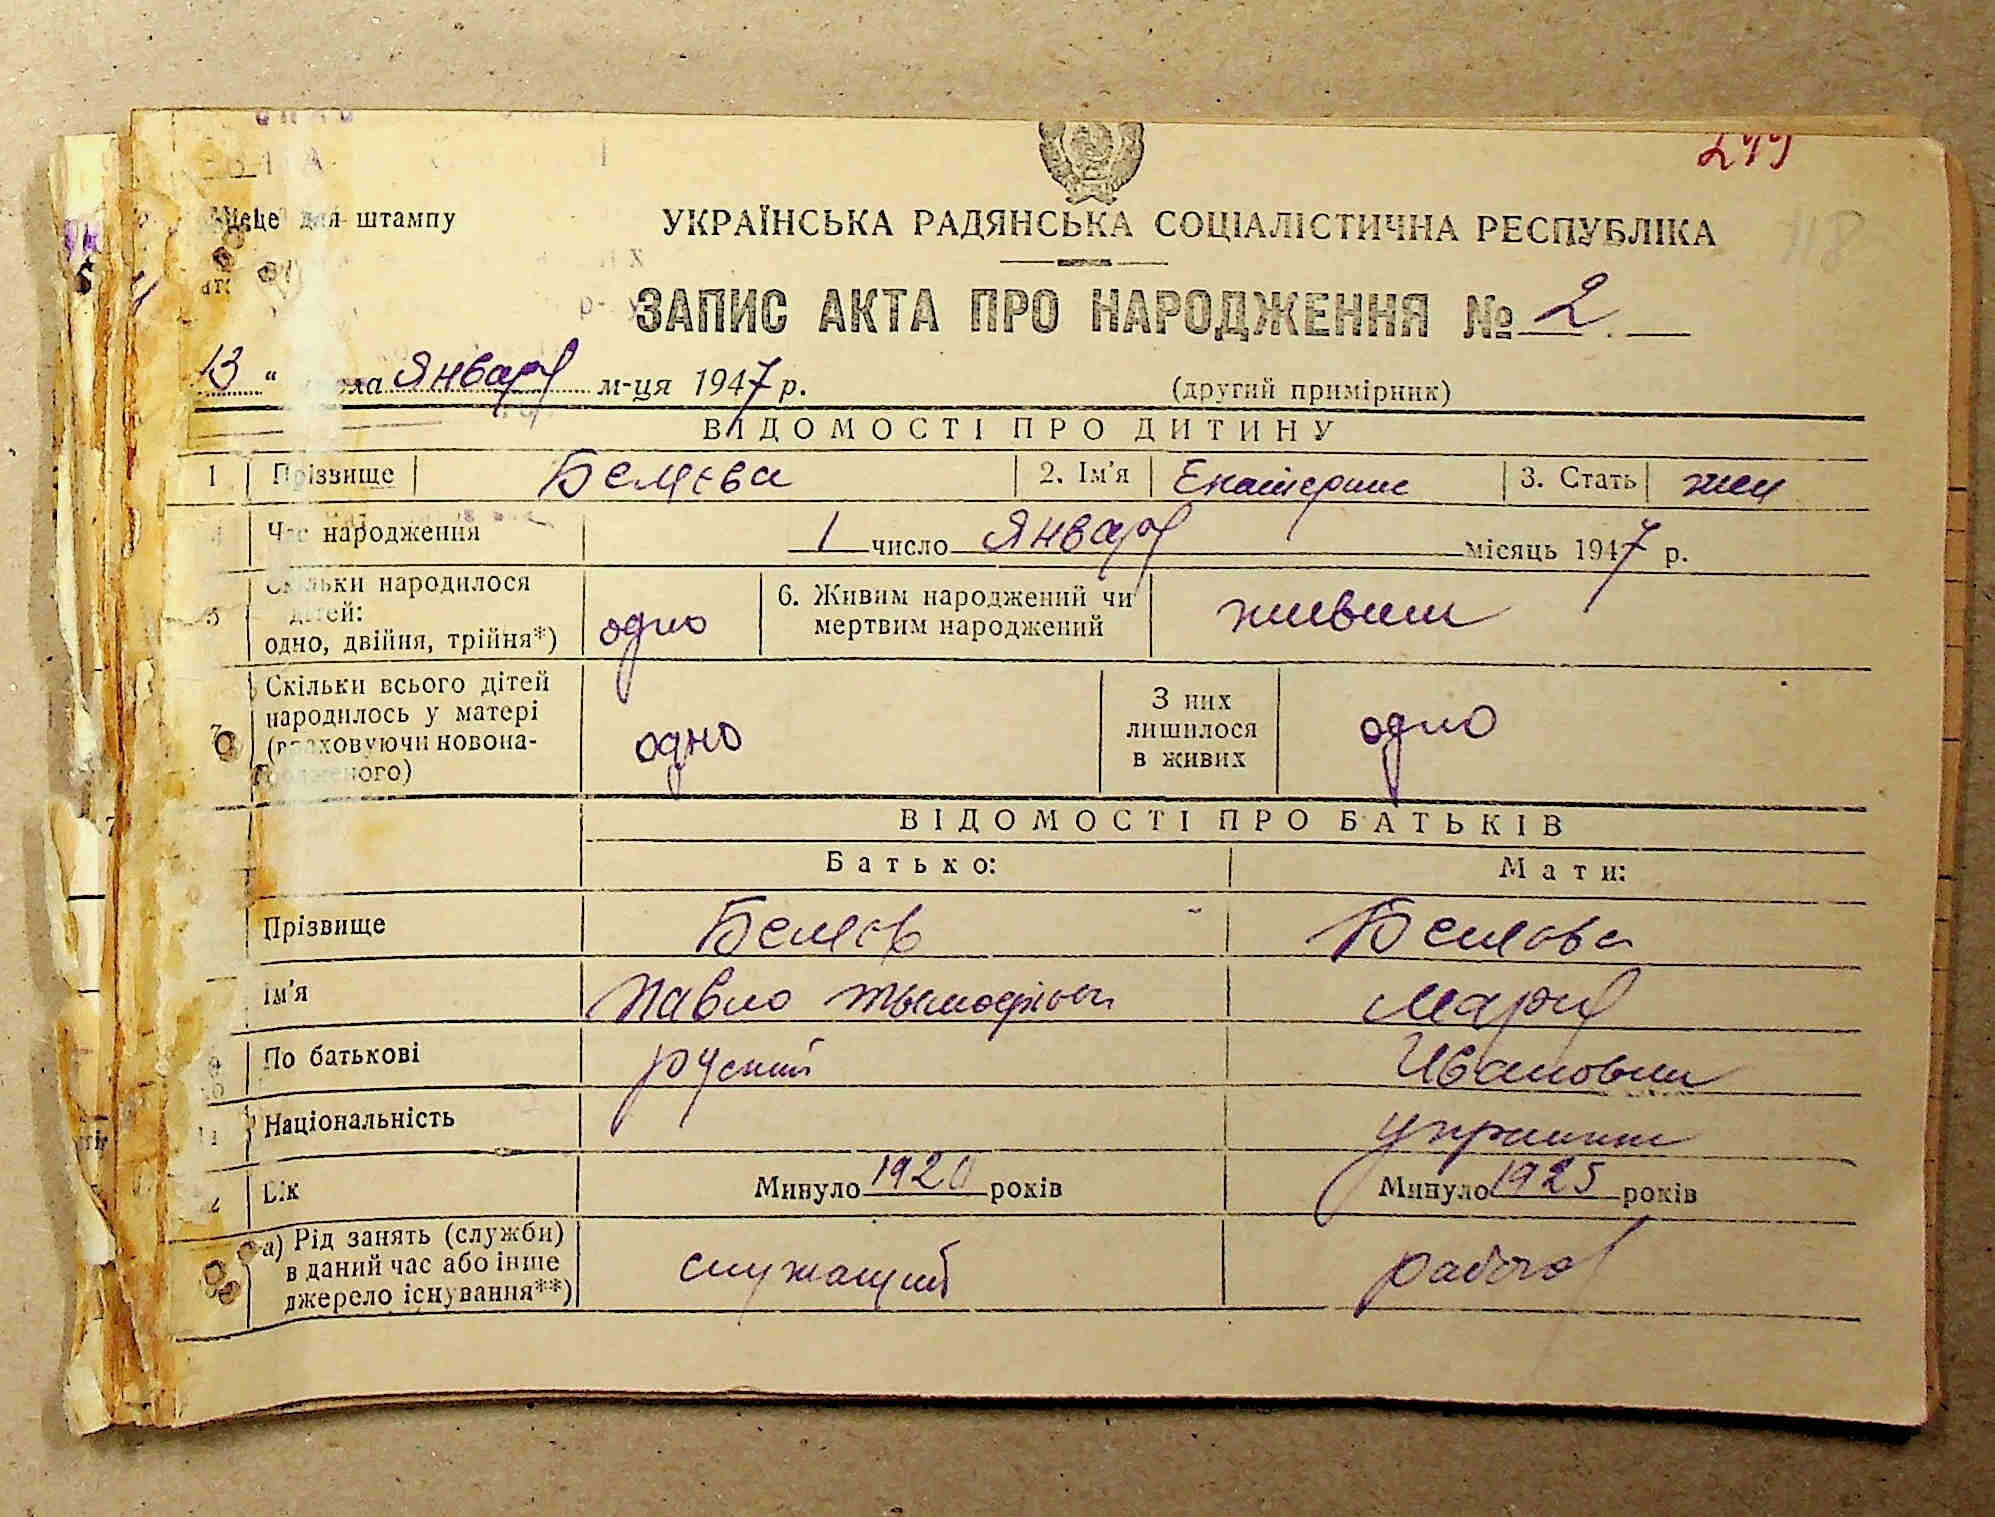 299
Місце для штампу
УКРАЇНСЬКА РАДЯНСЬКА СОЦІАЛІСТИЧНА РЕСПУБЛІКА
ЗАПИС АКТА ПРО НАРОДЖЕННЯ № 2
13 " числа Января м-ця 1947 р. (другий примірник)
ВІДОМОСТІ ПРО ДИТИНУ
1 Прізвище 2. Ім'я Екатерина 3. Стать жен
4 Час народження 1 число Января місяць 1947 р.
5 Скільки народилося
дітей:
одно, двійня, трійня*) одно
6. Живим народжений чи
мертвим народжений живим
7 Скільки всього дітей
народилось у матері
(враховуючи новона-
родженого) одно
З них
лишилося
в живих одно
ВІДОМОСТІ ПРО БАТЬКІВ
Батько: Мати:
Прізвище
Ім'я Павло Мария
По батькові руский Ивановна
11 Національність
Вік Минуло 1920 років Минуло 1925 років
а) Рід занять (служби)
в даний час або інше
джерело існування**) служащий